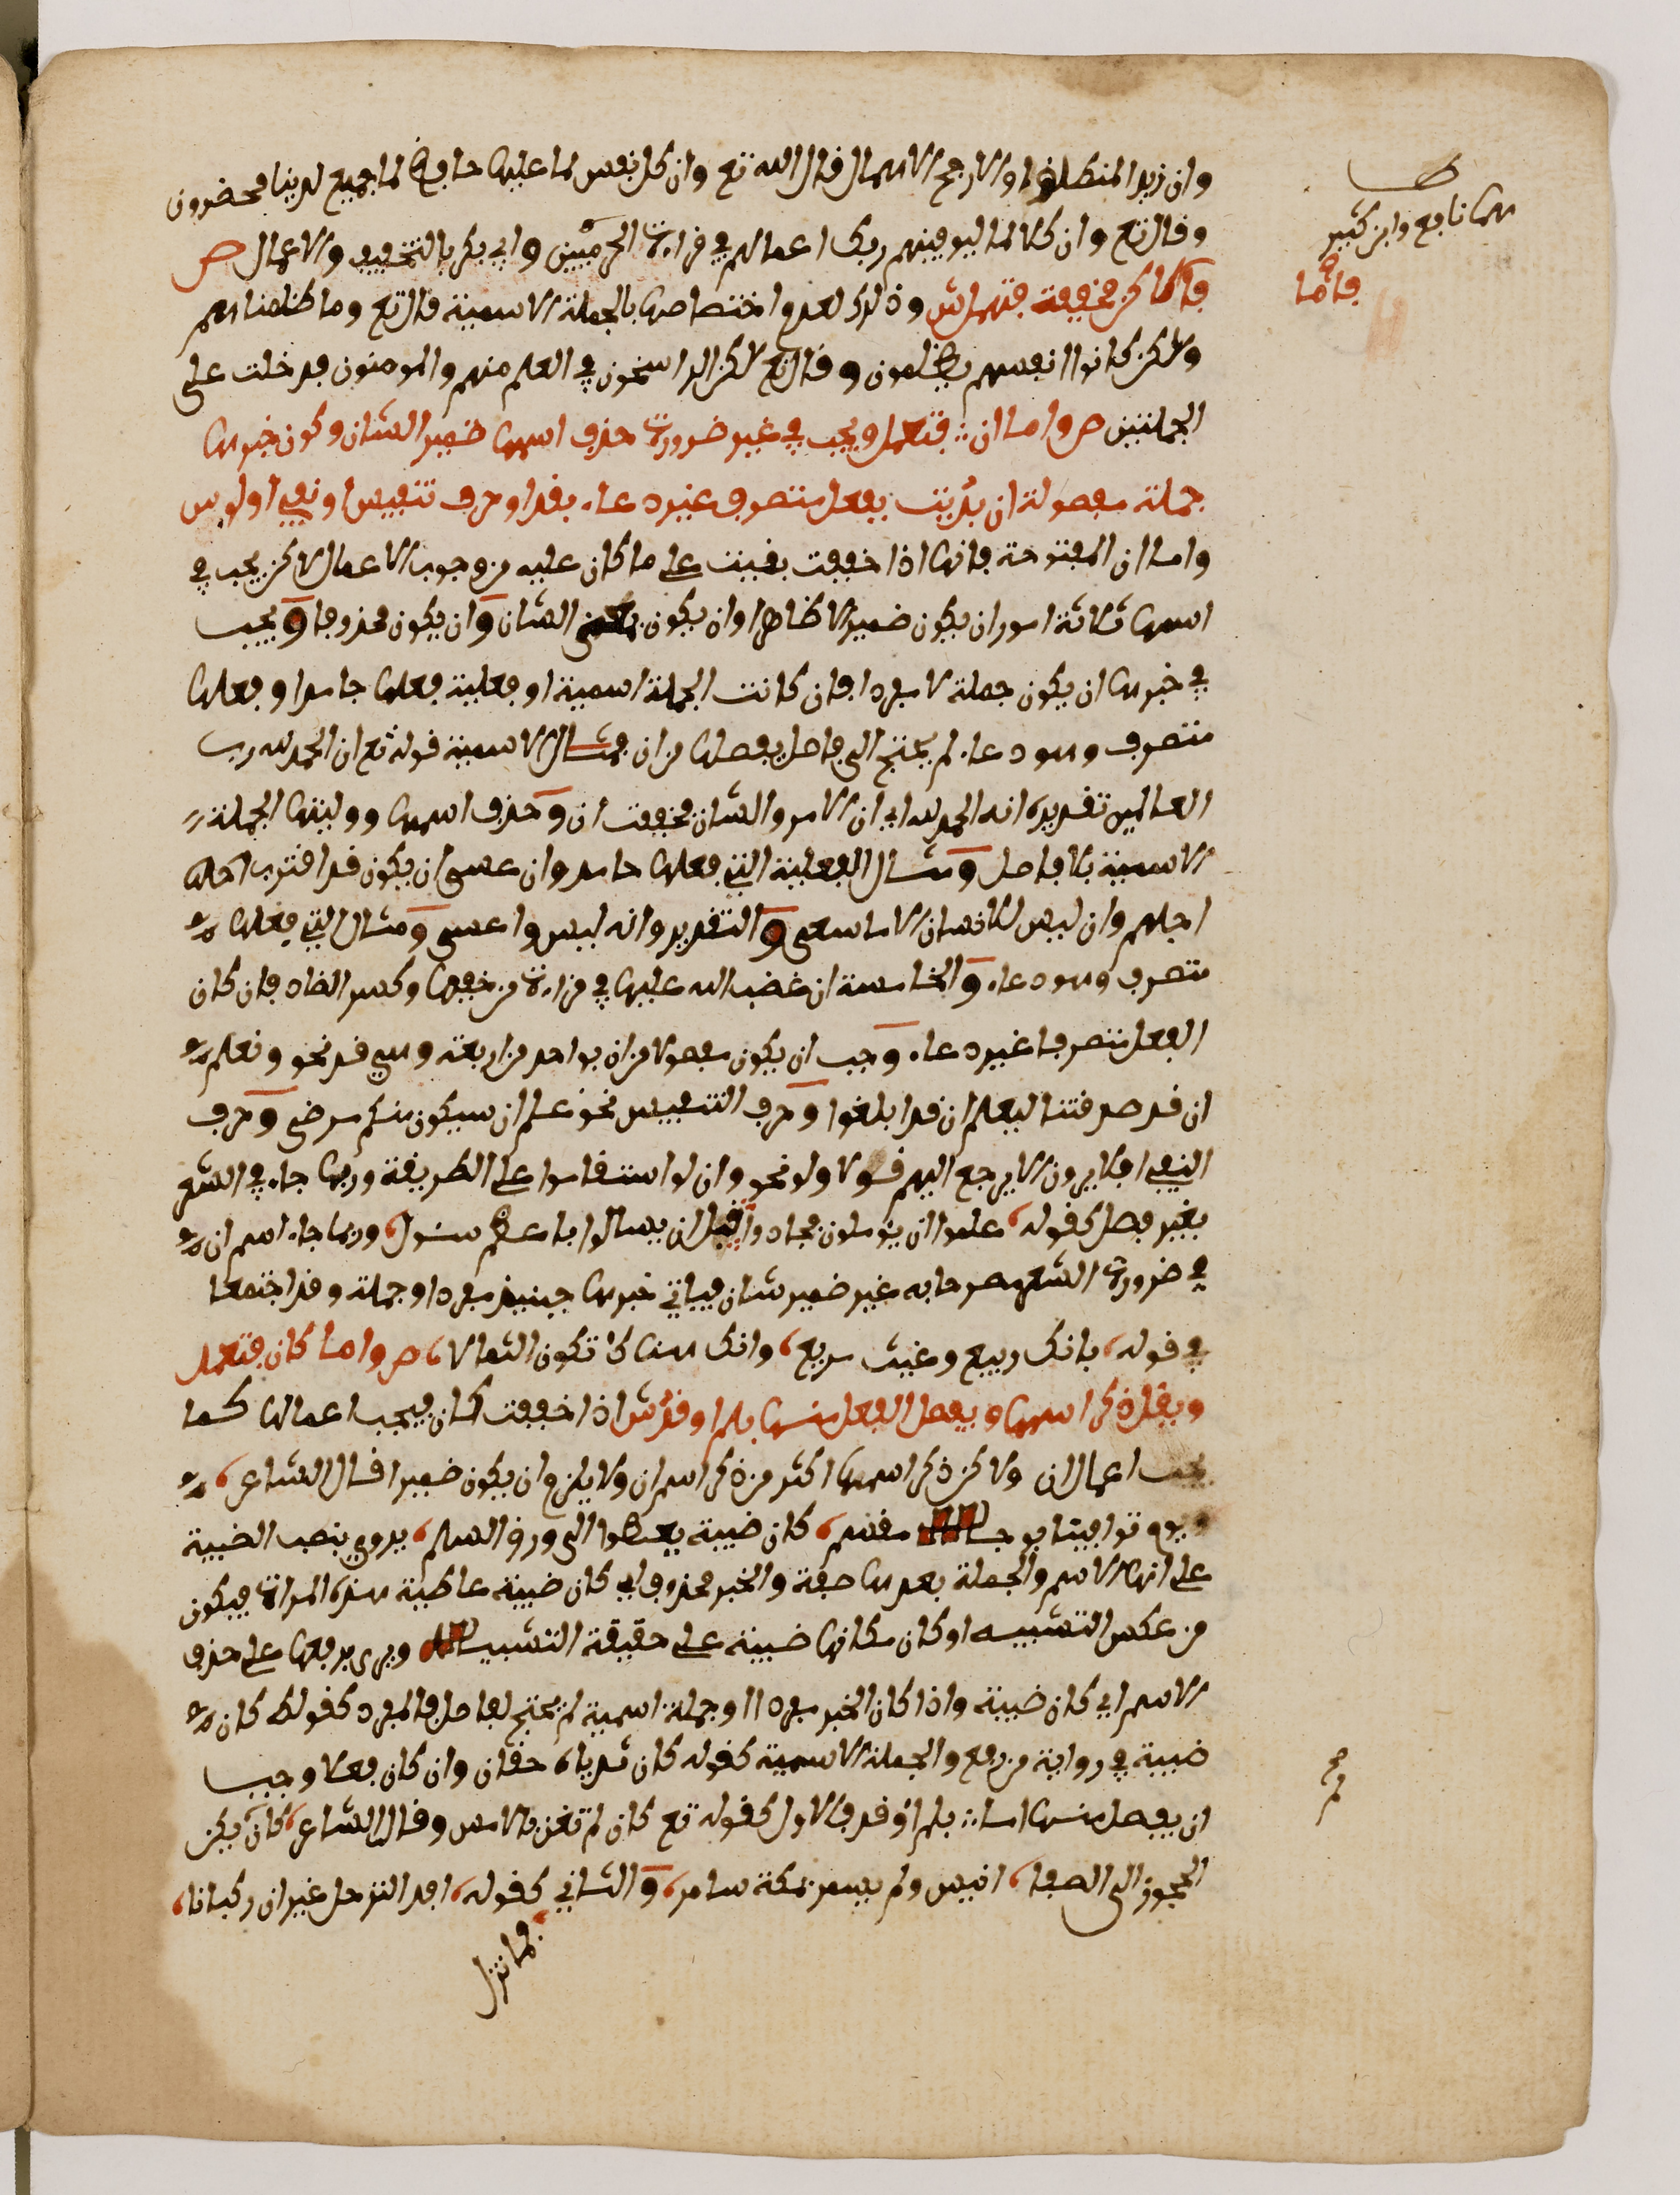 وان زيدا لمنطلق والارجح الاهمال قال الله تع وان كل نفس لما عليها حافظ وان كل لما جميع لدينا محضرون
وقال تع وان كلا لما ليوفينهم ربك اعمالهم في قراءة الحرميين وابي بكر بالتخفيف والاعمال ص
فاما لكن مخففة فتهمل ش وذلك لعدم اختصاصها بالجملة الاسمية قال تع وما ظلمناهم
ولكن كانوا انفسهم يظلمون وقال تع لكن الراسخون في العلم منهم والمومنون فدخلت على
الجملتين ص واما ان فتعمل ويجب في غير ضرورة حذف اسمها ضمير الشان وكون خبرها
جملة مفصولة ان بدئت بفعل متصرف غير دعاء بقد او حرف تنفيس او نفي او لو ش
واما ان المفتوحة فانها اذا خففت بقيت على ما كان عليه من وجوب الاعمال لكن يجب في
اسمها ثلاثة امور ان يكون ضميرا لا ظاهرا وان يكون بمعنى الشان وان يكون محذوفا ويجب
في خبرها ان يكون جملة لا مفردا فان كانت الجملة اسمية او فعلية فعلها جامد او فعلها
متصرف وهو دعاء لم يحتج الى فاصل يفصلها من ان فمثال الاسمية قوله تع ان الحمد لله رب
العالمين تقديره انه الحمد لله اي ان الامر والشان فخففت ان وحذف اسمها ووليتها الجملة
الاسمية بلا فاصل ومثال الفعلية التي فعلها جامد وان عسى ان يكون قد اقترب
اجلهم وان ليس للانسان الا ما سعى والتقدير وانه ليس وا عسى ومثال التي فعلها
متصرف وهو دعاء والخامسة ان غضب الله عليها في قراءة من خففها وكسر الضاد فان كان
الفعل متصرفا غير دعاء وجب ان يكون مفصولا من ان بواحد من اربعة وهي قد نحو ونعلم
ان قد صدقتنا ليعلم ان قد ابلغوا وحرف التنفيس نحو علم ان سيكون منكم مرضى وحرف
النفي افلا يرون الا يرجع اليهم قولا ولو نحو وان لو استقاموا على الطريقة وربما جاء في الشعر
بغير فصل كقوله علموا ان يؤملون فجادوا قبل ان يسالوا باعظم سؤل وربما جاء اسم ان
في ضرورة الشعر مصرحا به غير ضمير شان فياتي خبرها حينيذ مفردا وجملة وقد اجتمعا
في قوله بانك ربيع وغيث مريع وانك هناك تكون الثمالا ص واما كان فتعمل
ويقل ذكر اسمها ويفصل الفعل منها بلم او قد ش اذا خففت كان فيجب اعمالها كما
يجب اعمال ان ولكن ذكر اسمها اكثر من ذكر اسم ان ولا يلزم ان يكون ضميرا قال الشاعر
ويوم توافينا بوجه مقسم كان ضبية تعطوا الى ورق السلم يروى بنصب الضبية
على انها الاسم والجملة بعدها صفة والخبر محذوف اي كان ضبية عاطية هذه المراة فيكون
من عكس التشبيه او كان مكانها ضبية على حقيقة التشبيه ويروى برفعها على حذف
الاسم اي كان ضبية واذا كان الخبر مفردا او جملة اسمية لم يحتج لفاصل فالمفرد كقوله كان
ضبية في رواية من رفع والجملة الاسمية كقوله كان ثدياه حقان وان كان فعلا وجب
ان يفصل منها اما بلم او قد فالاول كقوله تع كان لم تغن بالامس وقال الشاعر كان لم يكن
الحجون الى الصفا انيس ولم يسمر بمكة سامر والثاني كقوله افد الترحل غير ان ركابنا
لما تزل
هما نافع وابن كثير
فاما